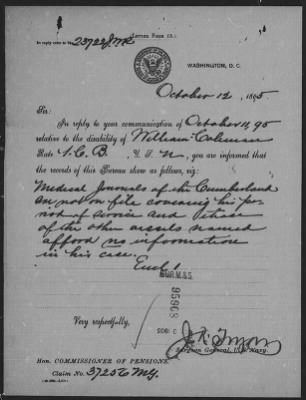 In reply refer to No. 23722
WASHINGTON, D. C.
October 12, 1895
Sir:
In reply to your communication of October 11, 95
relative to the disability of William Coleman
Rate 1. C. B., U. S. N., you are informed that
the records of this Bureau show as follows, viz:
Medical Journals of the Cumberland
are not on file covering his per-
iod of service and those
of the other vessels named
afford no information
in his case.
Encl 1
95908
Very respectfully,
Surgeon General, U. S. Navy.
Hon. COMMISSIONER OF PENSIONS.
Claim No. 37256